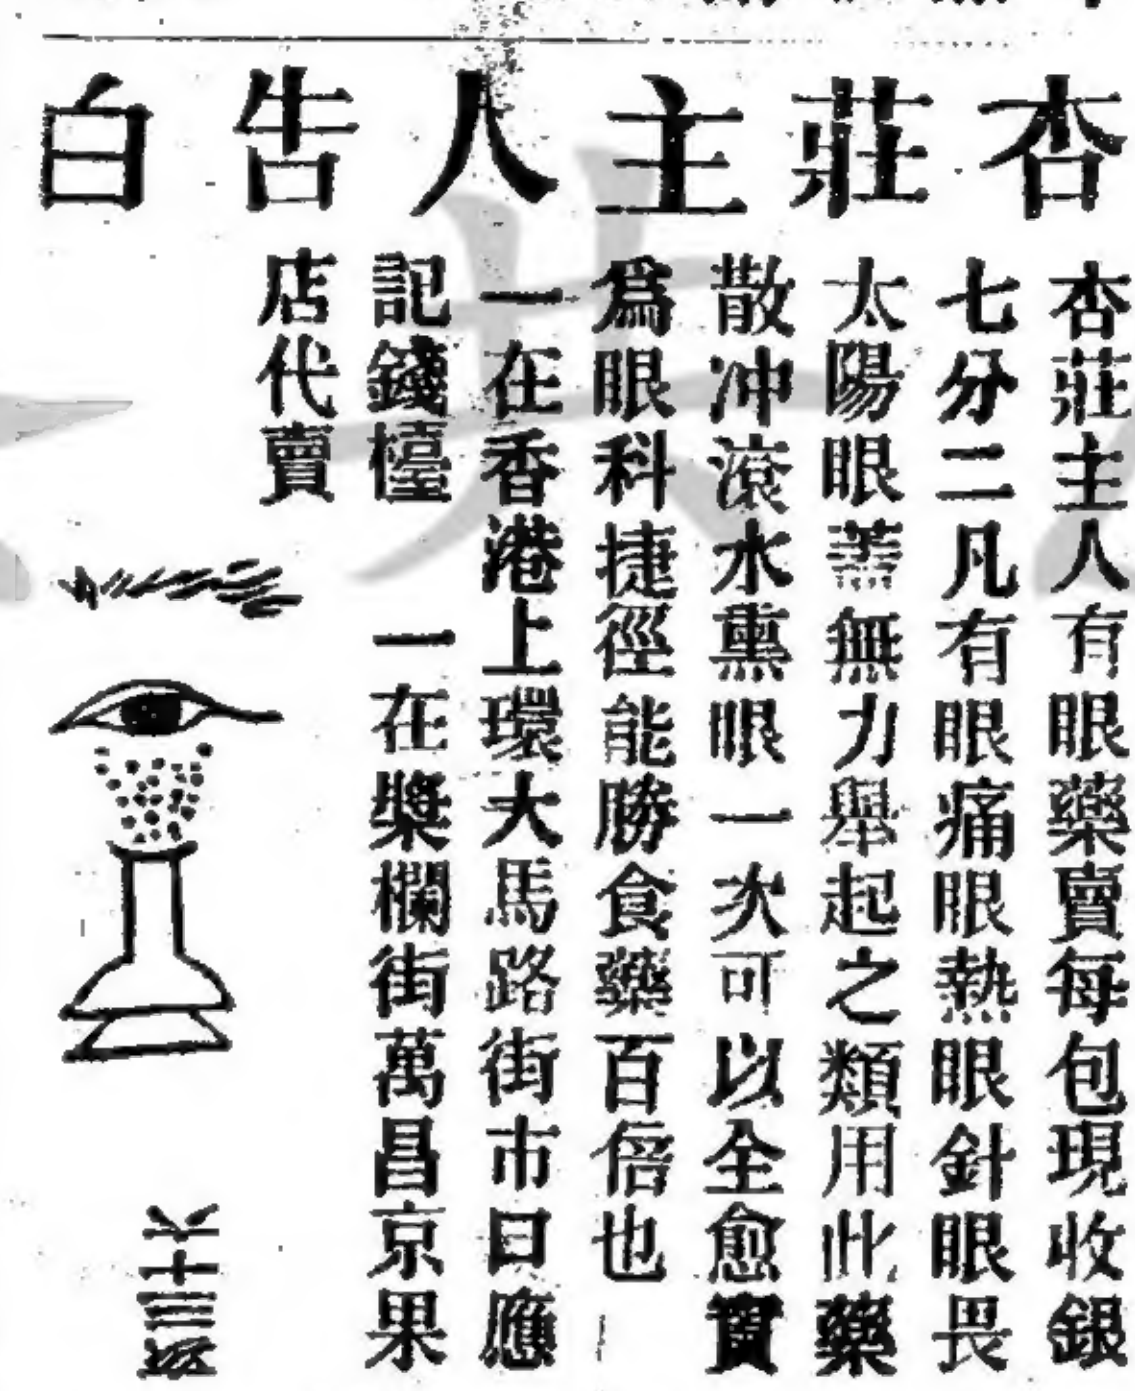 杏莊主人告白
杏莊主人有眼藥賣每包現收銀
七分二凡有眼痛眼熱眼眼針眼畏
太陽眼蓋無力舉起之類用此藥
散冲滾水熏眼一次可以全愈實
為眼科捷徑能勝食藥百倍也
一在香港上環大馬路街市日應
記錢檯 一在槳欄街萬昌京果
店代賣